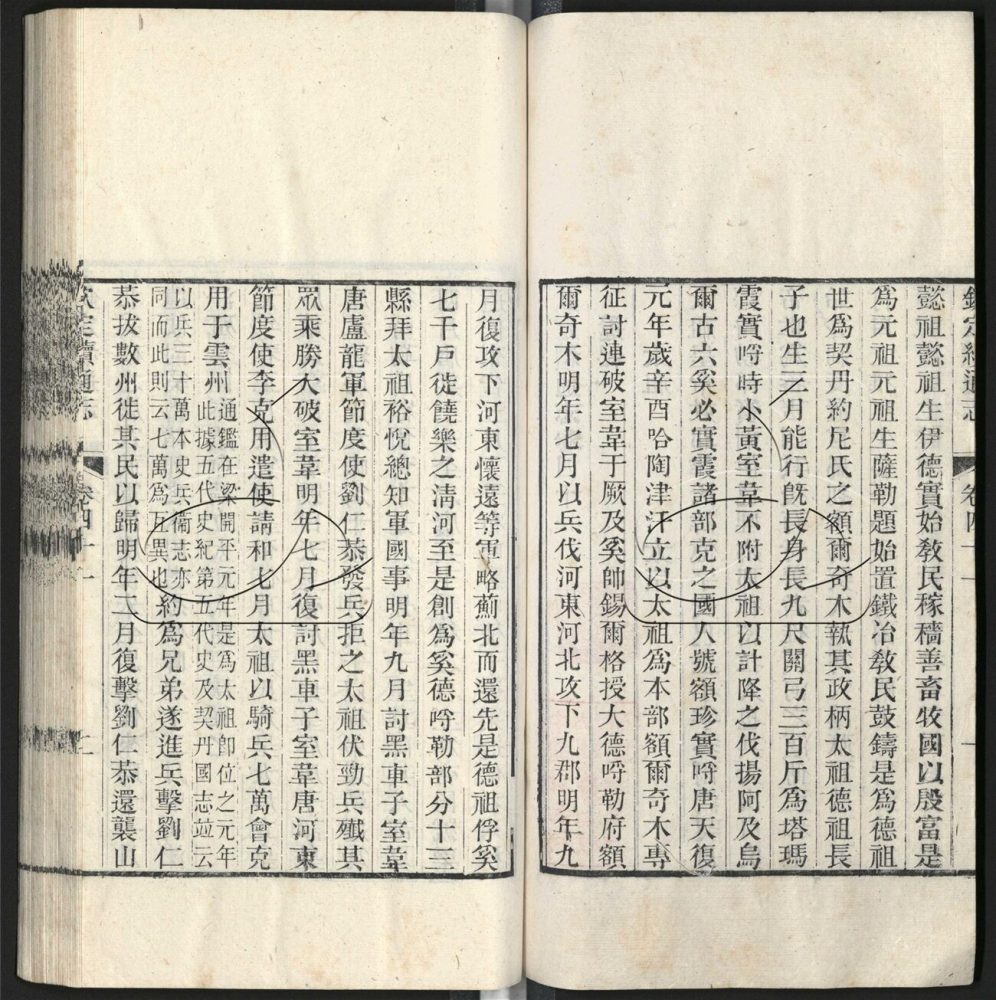 欽定續通志 卷四十一 一
懿祖懿祖生伊德實始敎民稼穡善畜牧國以殷富是
爲元祖元祖生薩勒題始置鐵冶敎民鼓鑄是爲德祖
世爲契丹約尼氏之額爾奇木執其政柄太祖德祖長
子也生三月能行旣長身長九尺關弓三百斤爲塔瑪
霞實哷時小黃室韋不附太祖以計降之伐揚阿及烏
爾古六奚必實霞諸部克之國人號額珍實哷唐天復
元年歲辛酉哈陶津汗立以太祖爲本部額爾奇木專
征討連破室韋于厥及奚帥錫爾格授大德哷勒府額
爾奇木明年七月以兵伐河東河北攻下九郡明年九
月復攻下河東懷遠等軍略薊北而還先是德祖俘奚
七千戶徙饒樂之淸河至是創爲奚德哷勒部分十三
縣拜太祖裕悅總知軍國事明年九月討黑車子室韋
唐盧龍軍節度使劉仁恭發兵拒之太祖伏勁兵殲其
眾乘勝大破室韋明年七月復討黑車子室韋唐河東
節度使李克用遣使請和七月太祖以騎兵七萬會克
用于雲州通鑑在梁開平元年是爲太祖卽位之元年
此據五代史紀第五代史及契丹國志竝云
以兵三十萬本史兵衞志亦
同而此則云七萬爲互異也約爲兄弟遂進兵擊劉仁
恭拔數州徙其民以歸明年二月復擊劉仁恭還襲山
欽定續通志 卷四十一 一